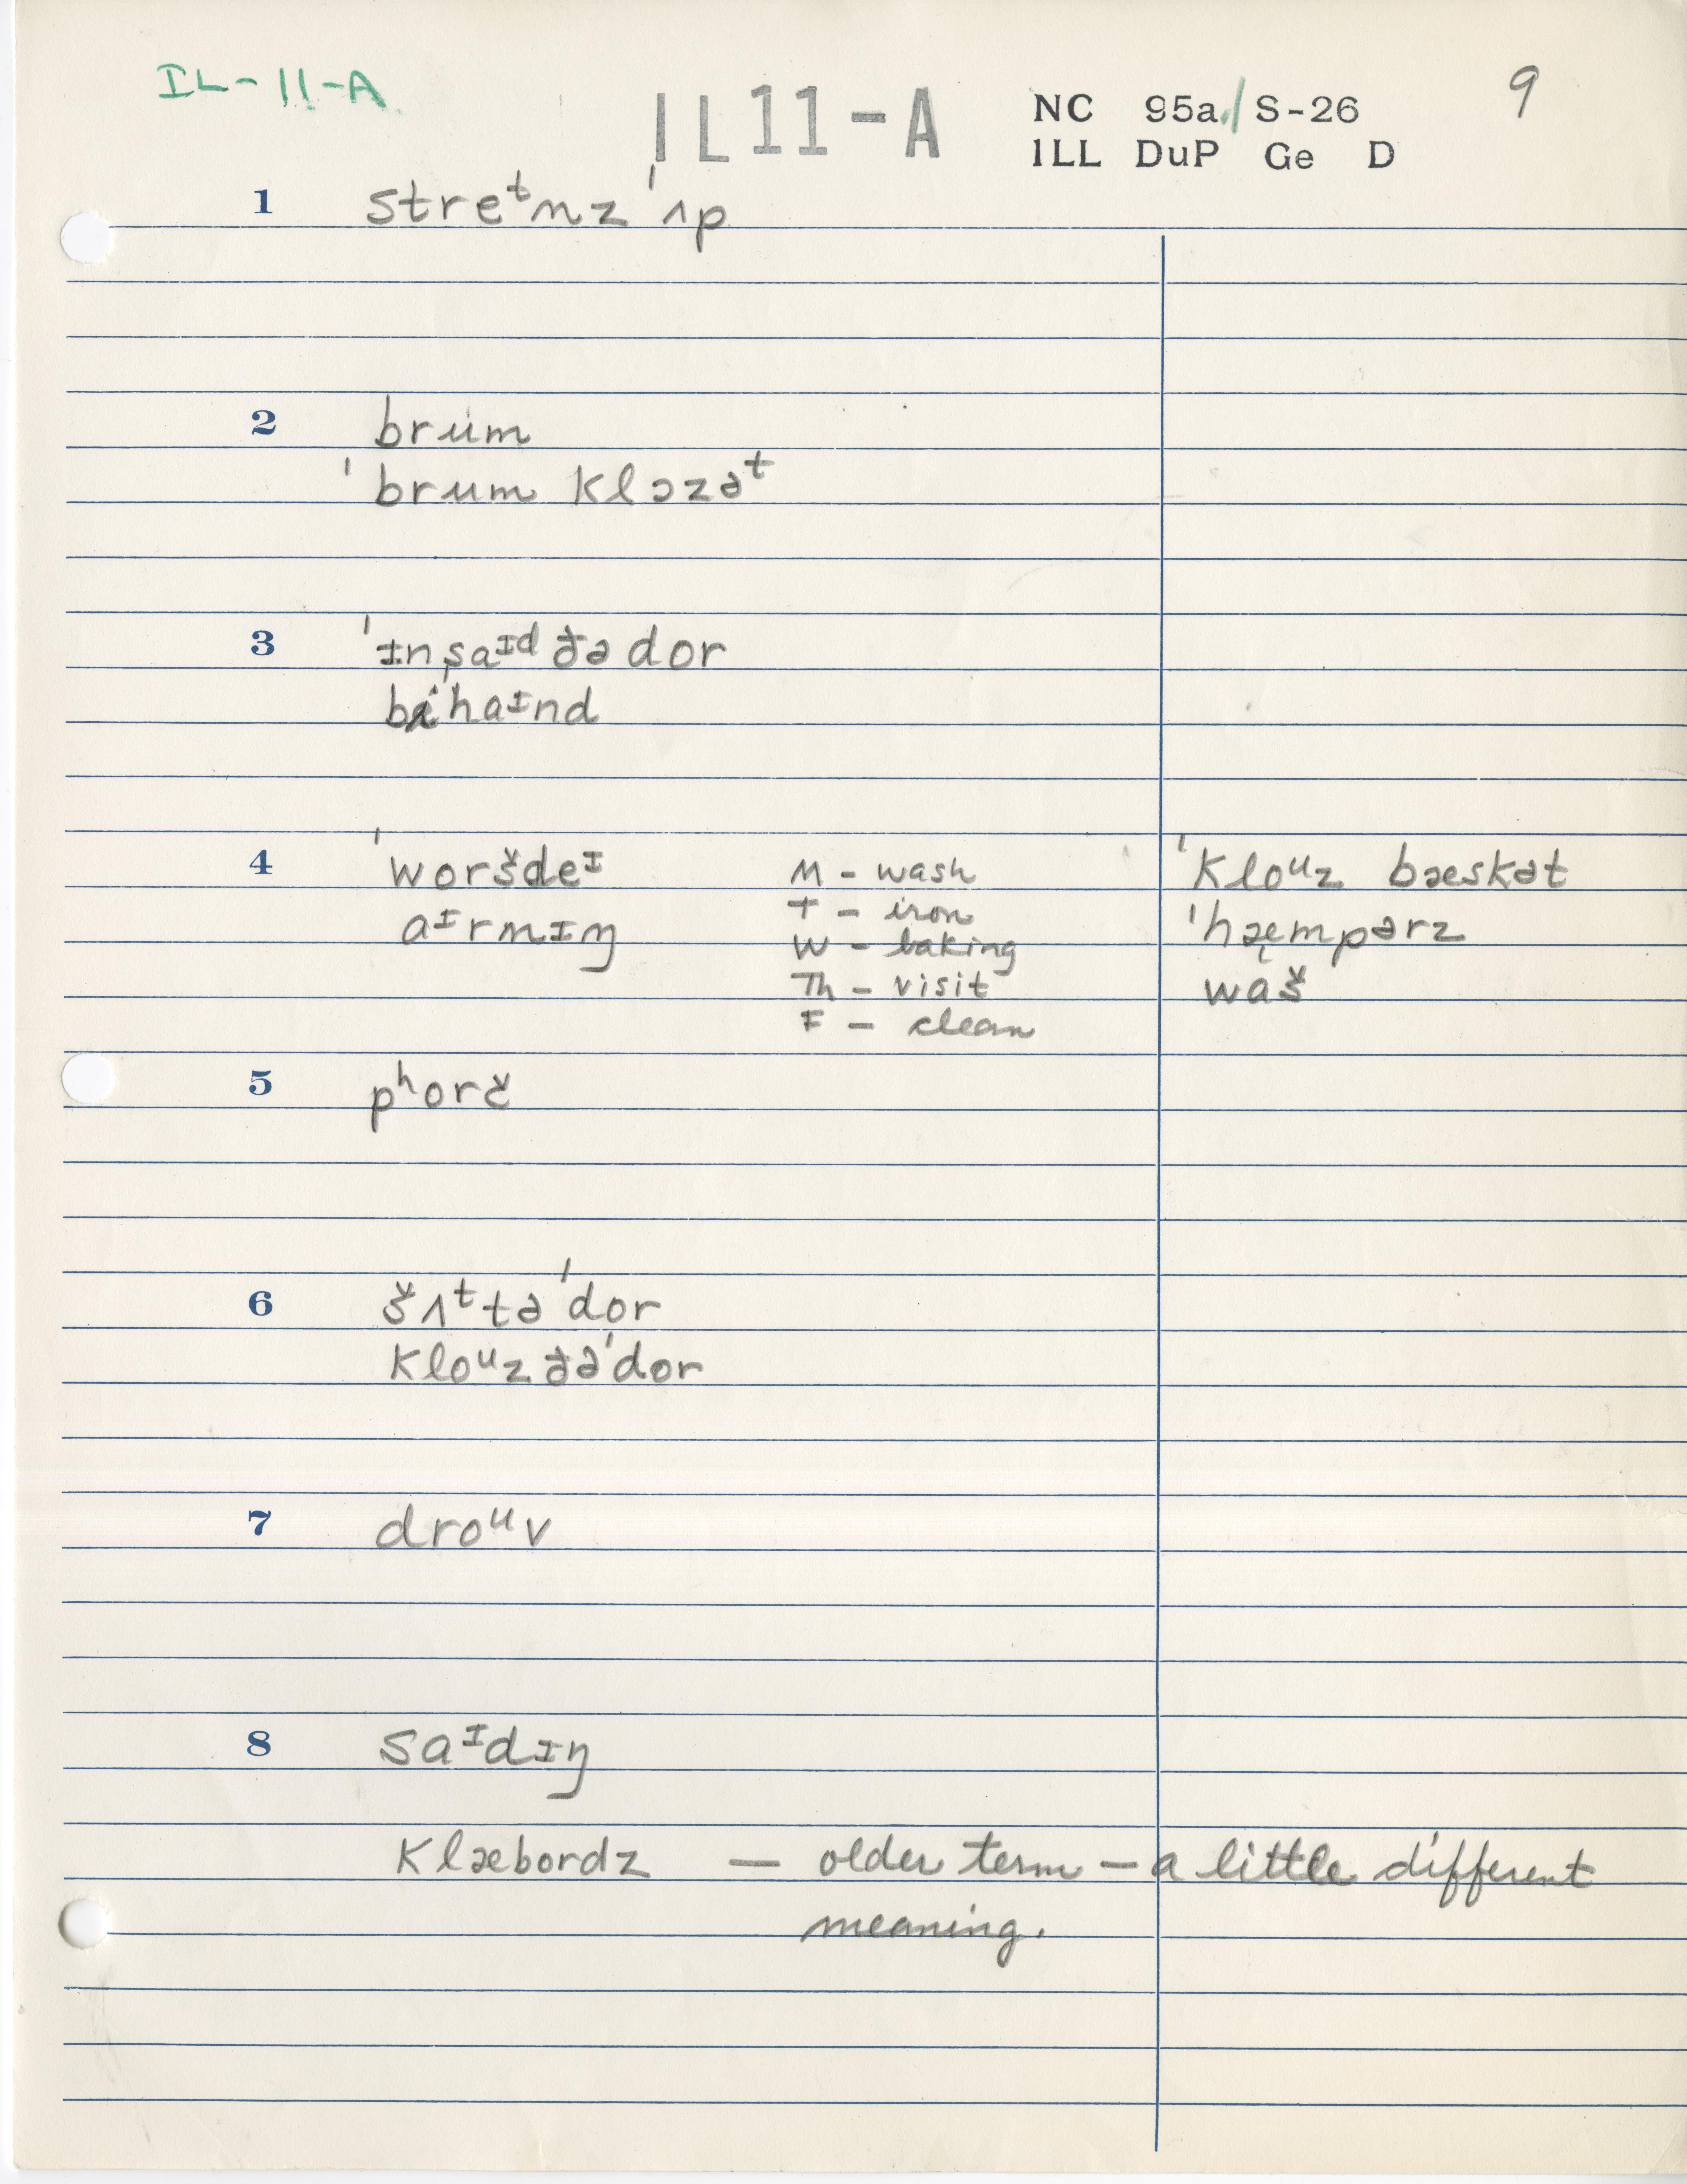 IL-11-A
IL11-A
NC 95a/S-26
ILL DuP Ge D
9
1 streᵗnz ˈʌp
2 brum
ˈbrum klɔzəᵗ
3 ˈɪnsaᶦd ðə dor
bɨˈhaᶦnd
4 ˈworšdeᶦ
aᶦrnɪŋ
M - wash
T - iron
W - baking
Th - visit
F - clean
ˈkloᵘz bæskət
ˈhæmpərz
waš
5 pʰorč
6 šʌᵗtə ˈdor
kloᵘzðəˈdor
7 droᵘv
8 saᶦdɪŋ
klæbordz — older term — a little different
meaning.